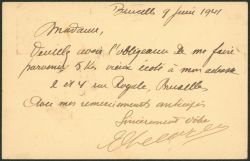 Bruxelles 9 Juin 1941
Madame,
Veuillez avoir l'obligeance de me faire
parvenir 5 Kgs vieux à mon adresse
2 et 4 rue Royale, Bruxelles
Avec mes remerciements anticipés
Sincèrement vôtre